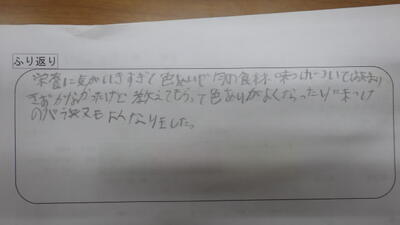 ふり返り
栄養に気がいきすぎて色あいや旬の食材、味つけについてはあまり
きおかなかったけど教えてもらって色あいがよくなったり味つけ
のバランスもよくなりました。